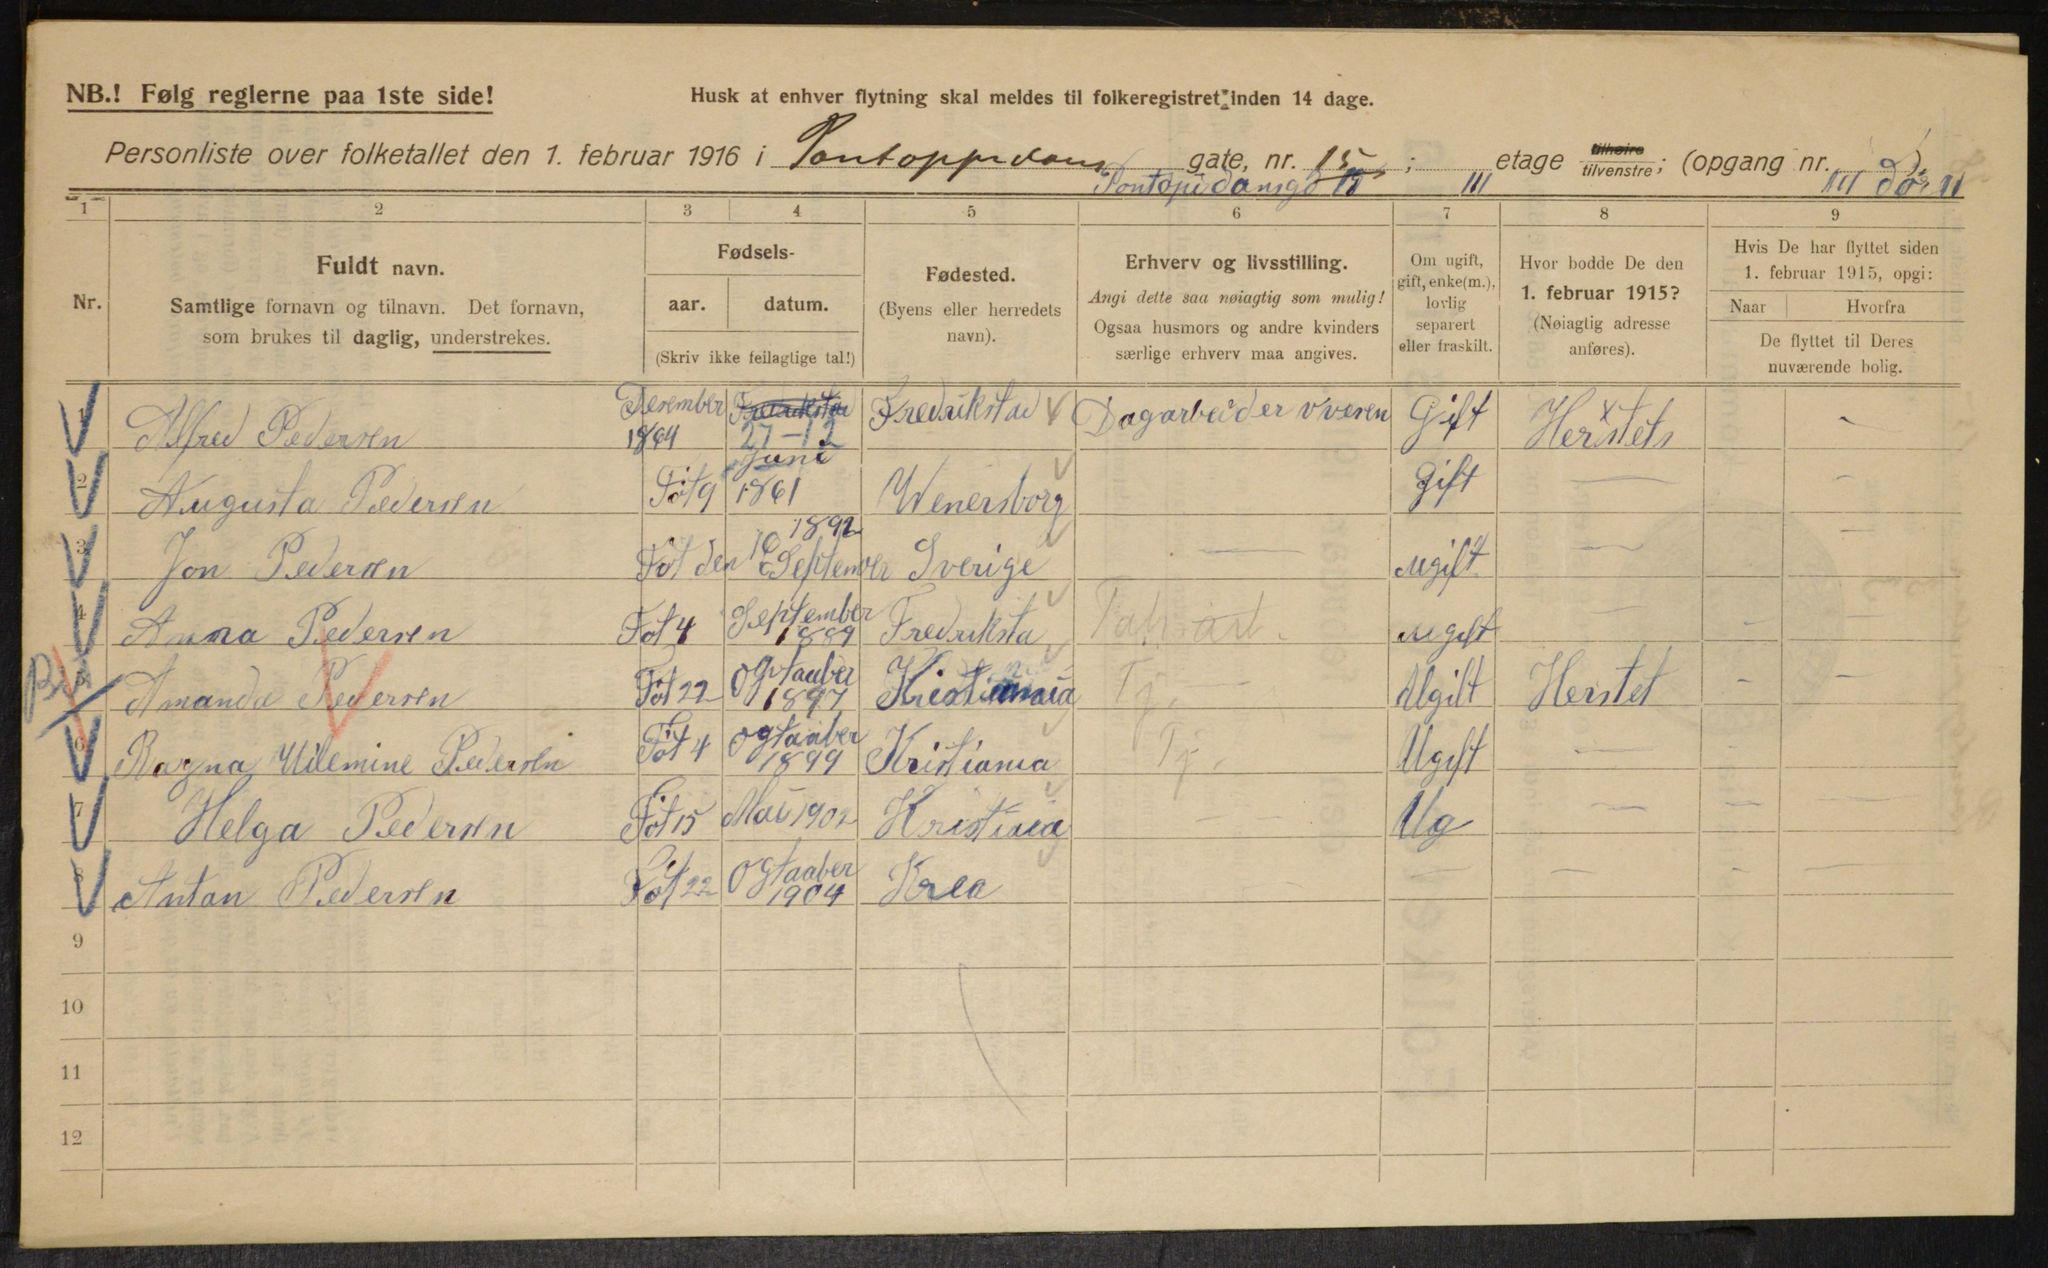 NB.! Følg reglerne paa 1ste side!
Husk at enhver flytning skal meldes til folkeregistret inden 14 dage.
Personliste over folketallet den 1. februar 1916 i Pontoppidans gate, nr. 15 ; etage tilhøire tilvenstre; (opgang nr. )
Pontopidansg 15 III III dør II
1 2 3 4 5 6 7 8 9
Nr.
Fuldt navn.
Samtlige fornavn og tilnavn. Det fornavn,
som brukes til daglig, understrekes.
Fødsels-
aar. datum.
(Skriv ikke feilagtige tal!)
Fødested.
(Byens eller herredets
navn).
Erhverv og livsstilling.
Angi dette saa nøiagtig som mulig!
Ogsaa husmors og andre kvinders
særlige erhverv maa angives.
Om ugift,
gift, enke(m.),
lovlig
separert
eller fraskilt.
Hvor bodde De den
1. februar 1915?
(Nøiagtig adresse
anføres).
Hvis De har flyttet siden
1. februar 1915, opgi:
Naar Hvorfra
De flyttet til Deres
nuværende bolig.
1 Alfred Pedersen Desember 1864 Fredrikstad 27-12 Fredrikstad Dagarbeider vvesen Gift Herstets —
2 Augusta Pedersen Föt 9 Juni 1861 Wenersborg Gift — —
3 Jon Pedersen Föt den 16 September 1892 Sverige — Ugift — —
4 Anna Pedersen Föt 4 September 1889 Fredriksta Ugift — — —
5 Amanda Pedersen Föt 22 Ogtaaber 1897 Kristiania Tj. — Ugift Herstet — —
6 Ragna Vilemine Pedersen Föt 4 Ogtaaber 1899 Kristiania Tj. Ugift — — —
7 Helga Pedersen Föt 15 Mai 1902 Kristiania — Ug — — —
8 Antan Pedersen Föt 22 Ogtaaber 1904 Krea — — — —
9
10
11
12